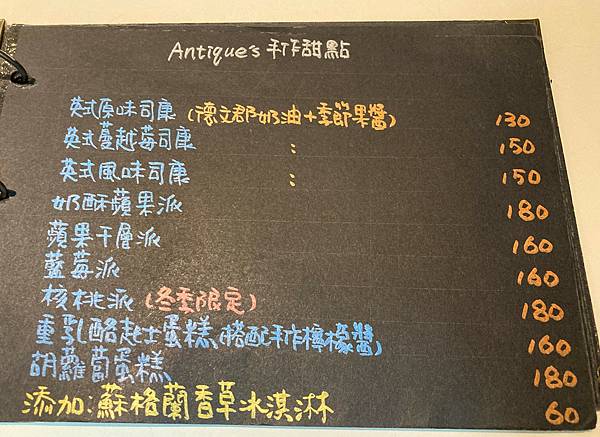 Antique's 手作甜點
英式原味司康 (德文郡奶油+季節果醬) 130
英式蔓越莓司康 : 150
英式風味司康 : 150
奶酥蘋果派 180
蘋果千層派 160
藍莓派 160
核桃派 (冬季限定) 180
重乳酪起士蛋糕 (搭配手作檸檬醬) 160
胡蘿蔔蛋糕 180
添加:蘇格蘭香草冰淇淋 60